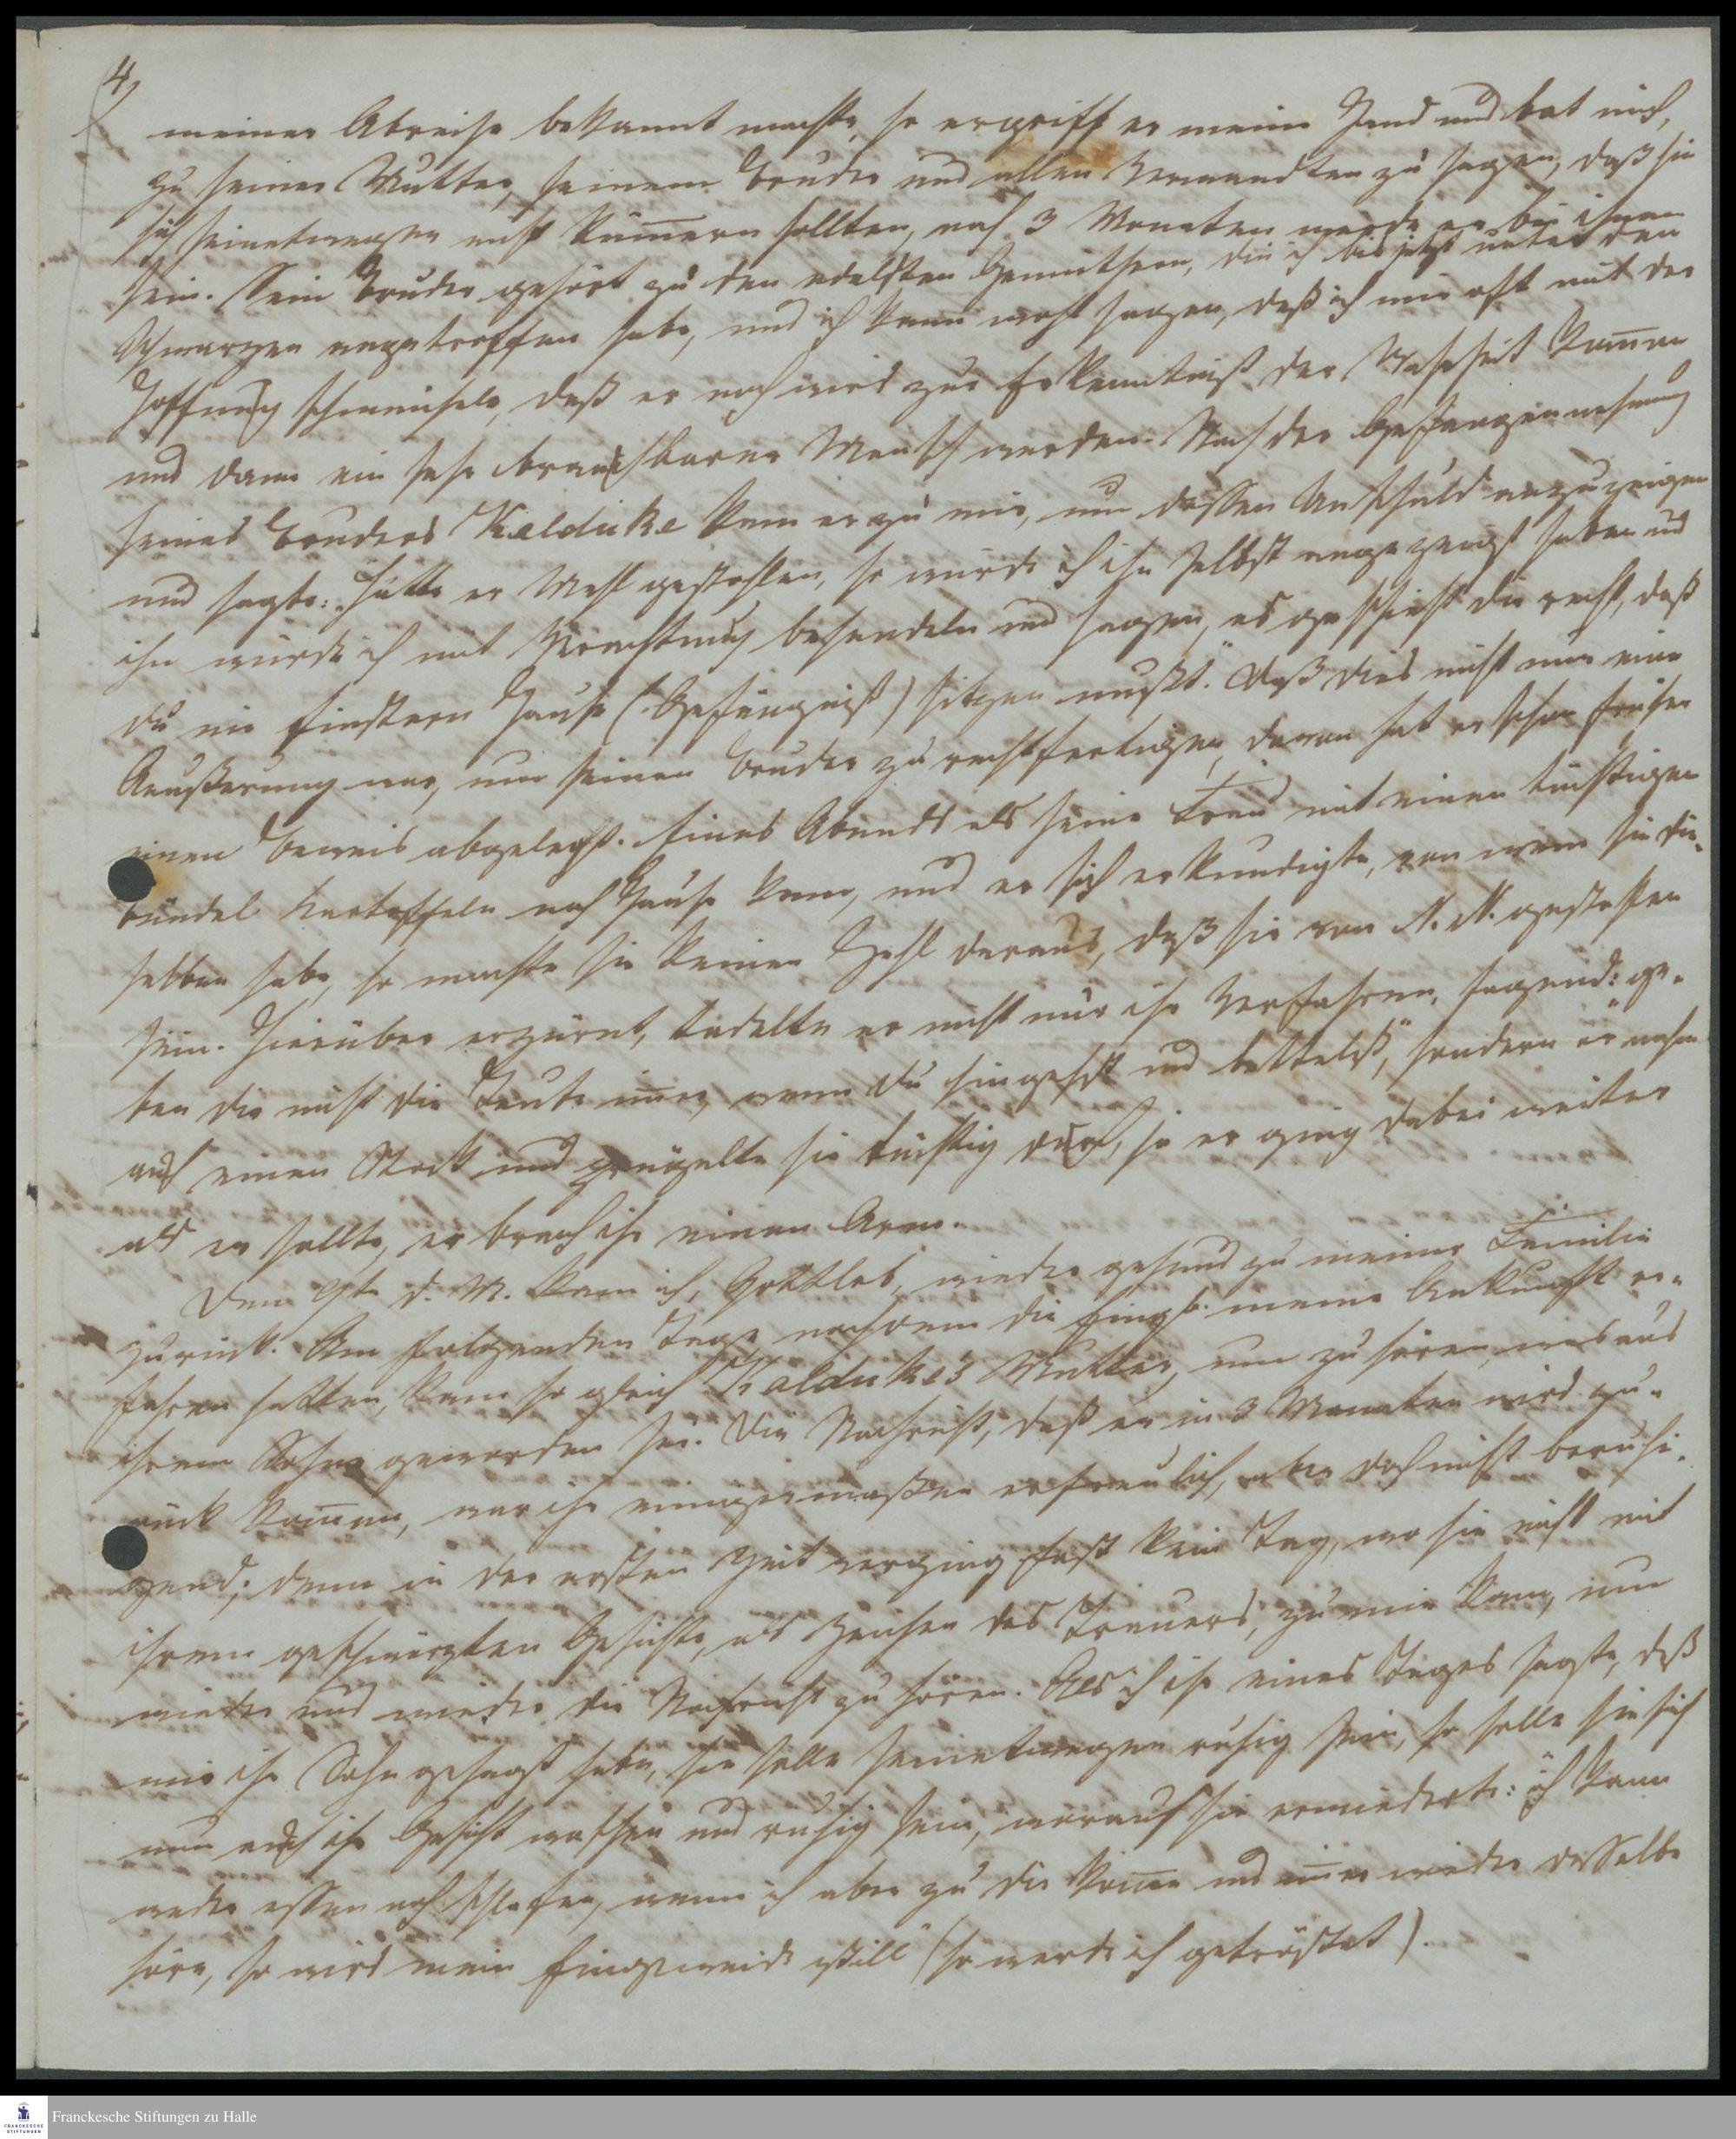 4/
meiner Abreise bekannt machte, so ergriff er meine Hand und bat mich,
zu seiner Mutter, seinem Bruder und allen Verwandten zu sagen, daß sie
sich seinetwegen nicht kum̄ern sollten, nach 3 Monaten werde er bei ihnen
sein. Sein Bruder gehört zu den edelsten Gemüthern, die ich bis jetzt unter den
Schwarzen angetroffen habe, und ich kann wohl sagen, daß ich mir oft mit der
Hoffnung schmeichele, daß er noch wird zur Erkenntniß der Wahrheit kom̄en
und dann ein sehr brauchbarer Mensch werden. Nach der Gefangennehmung
seines Bruders Kalduke kam er zu mir, um dessen Unschuld anzuzeigen
und sagte: „Hätte er Mehl gestohlen, so würde ich ihn selbst angezeigt haben und
ihn würde ich mit Verachtung behandeln und sagen, es geschieht dir recht, daß
du im finstern Hause (Gefängniß) sitzen mußt." Daß dies nicht nur eine
Aeußerung war, um seinen Bruder zu rechtfertigen, davon hat er schon früher
einen Beweis abgelegt. Eines Abends als seine Frau mit einen tüchtigen
Bündel Kartoffeln nach Hause kam, und er sich erkundigte, von wem sie die-
selben habe, so machte sie keinen Hehl daraus, daß sie von N. N. gestohlen
sein. Hierüber erzürnt, tadelte er nicht nur ihr Verfahren, sagend: „ge-
ben dir nicht die Leute im̄er, wenn du hingehst und bettelst," sondern er nahm
auch einen Stock und prügelte sie tüchtig durch, ja er ging dabei weiter
als er sollte, er brach ihr einen Arm.
Den 9t. d. M. kam ich, Gottlob, wieder gesund zu meiner Familie
zurück. Am folgenden Tage nachdem die Eingb. meine Ankunft er-
fahren hatten, kam so gleich Kalduke's Mutter, um zu hören, was aus
ihrem Sohne geworden sei. Die Nachricht, daß er in 3 Monaten wird zu-
rück kom̄en, war ihr einigermaßen erfreulich, aber doch nicht beruhi-
gend; denn in der ersten Zeit verging fast kein Tag, wo sie nicht mit
ihrem geschwärzten Gesichte, als Zeichen des Trauers, zu mir kam, um
wieder und wieder die Nachricht zu hören. Als ich ihr eines Tages sagte, daß
mir ihr Sohn gesagt habe, sie solle seinetwegen ruhig sein, so solle sie sich
nun auch ihr Gesicht waschen und ruhig sein, worauf sie erwiederte: „ich kann
weder essen noch schlafen, wenn ich aber zu dir kom̄e und im̄er wieder dasselbe
höre, so wird mein Eingeweide still" (so werde ich getröstet).
Franckesche Stiftungen zu Halle
FRANCKESCHE
STIFTUNGEN